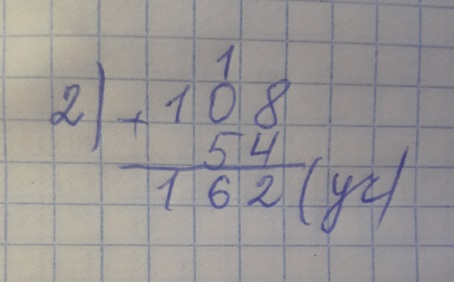 1
2) + 108
54
162 (уч)